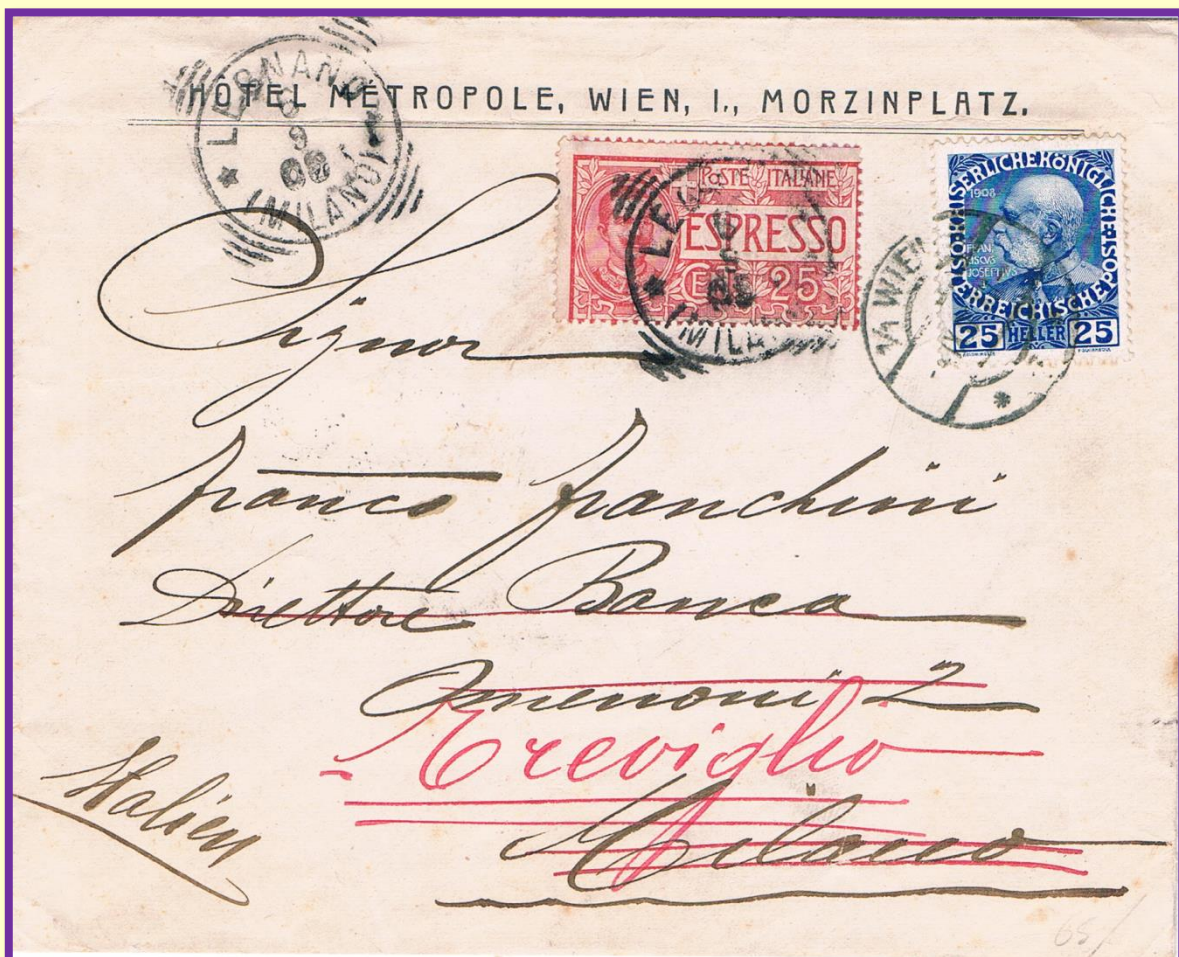 HÔTEL MÉTROPOLE, WIEN, I., MORZINPLATZ.
LEGNANO
9
(MILANO)
POSTE ITALIANE
ESPRESSO
CENT. 25
LEG
(MILA
KAISERLICHE KÖNIGLICHE
ÖSTERREICHISCHE POST
1908
FRAN
CISCVS
JOSEPHVS
25 HELLER 25
WIEN
Signor
Franco Franchini
Direttore Banca
Omenoni 2
Treviglio
Milano
Italien
65/